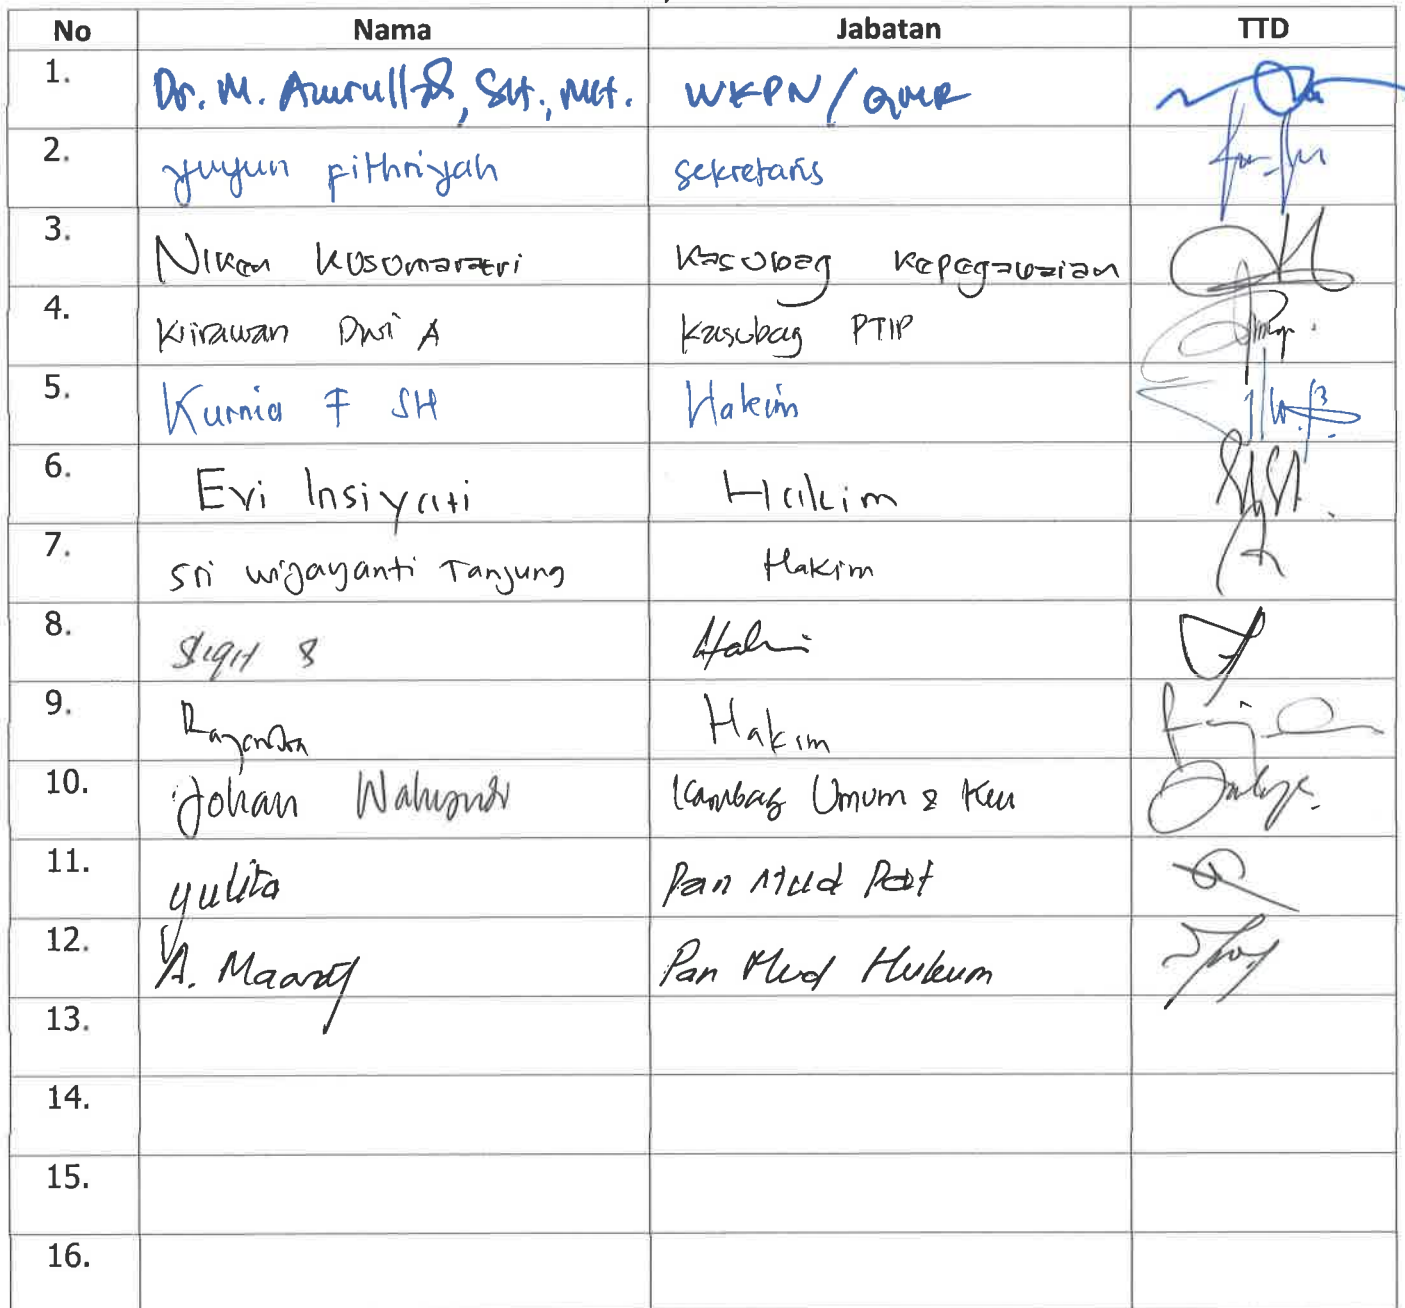 No Nama Jabatan TTD
1. Dr. M. Amrullah, SH., MH. WKPN/QMR
2. yuyun Fithriyah sekretaris
3. Niken Kusumaratri Kasubag Kepegawaian
4. Wirawan Dwi A Kasubag PTIP
5. Kurnia F SH Hakim
6. Evi Insiyati Hakim
7. Sri Wijayanti Tanjung Hakim
8. Sigit S Hakim
9. Hakim
10. Johan Wahyudi Kasubag Umum & Keu
11. yulita Pan Mud
12. A. Maarif Pan Mud Hukum
13.
14.
15.
16.